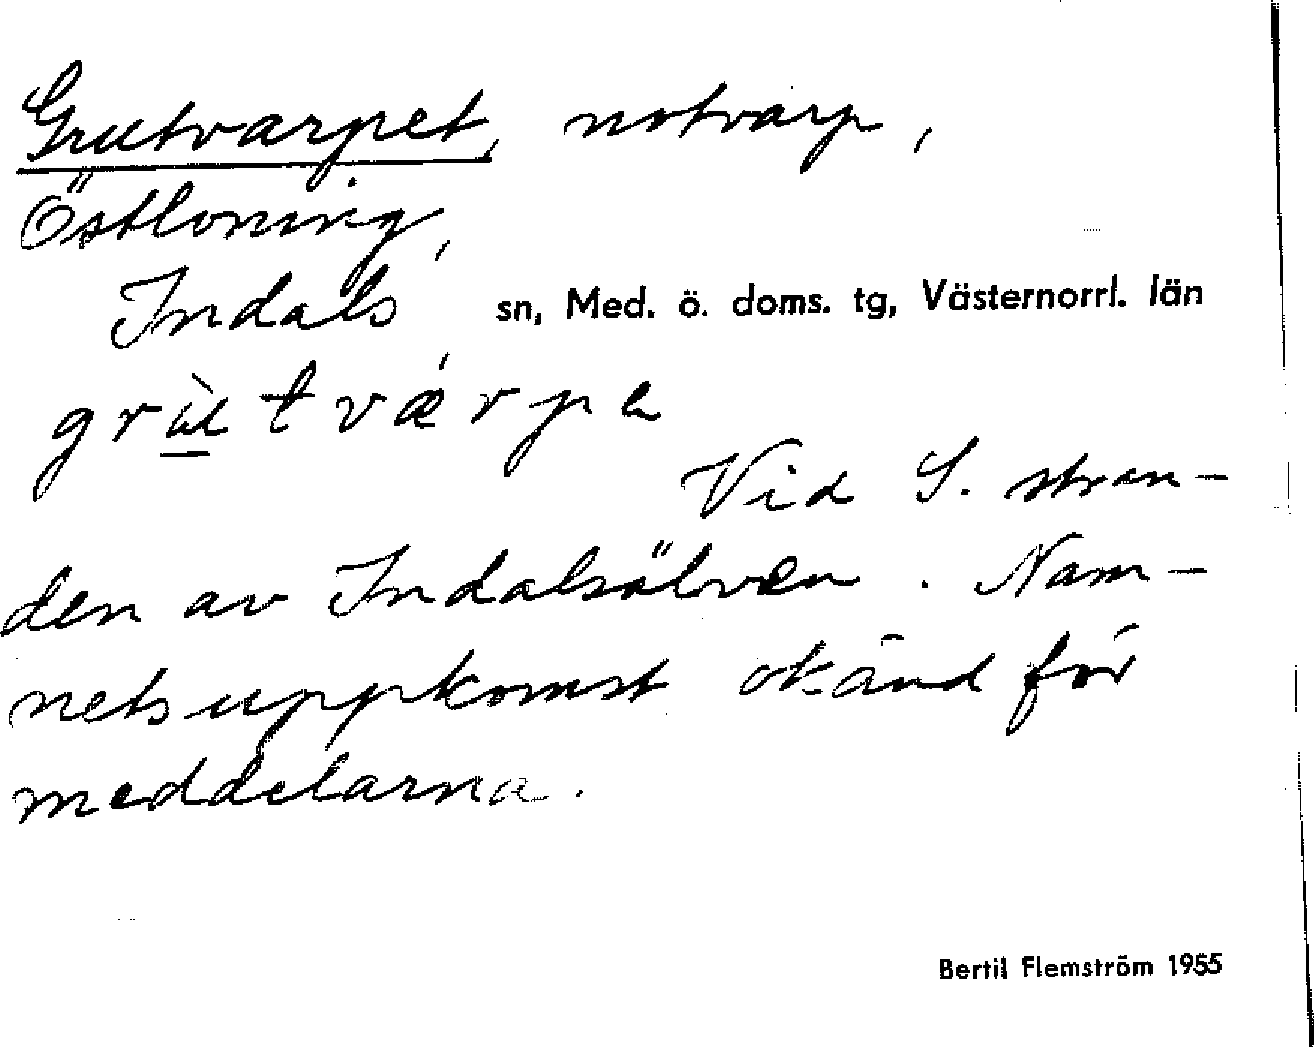 Grutvarpet, notvarp,
Östloning,
Indals sn, Med. ö. doms. tg, Västernorrl. län
grùtvǽrpa
Vid S. stran-
den av Indalsälven. Nam-
nets uppkomst okänd för
meddelarna.
Bertil Flemström 1955